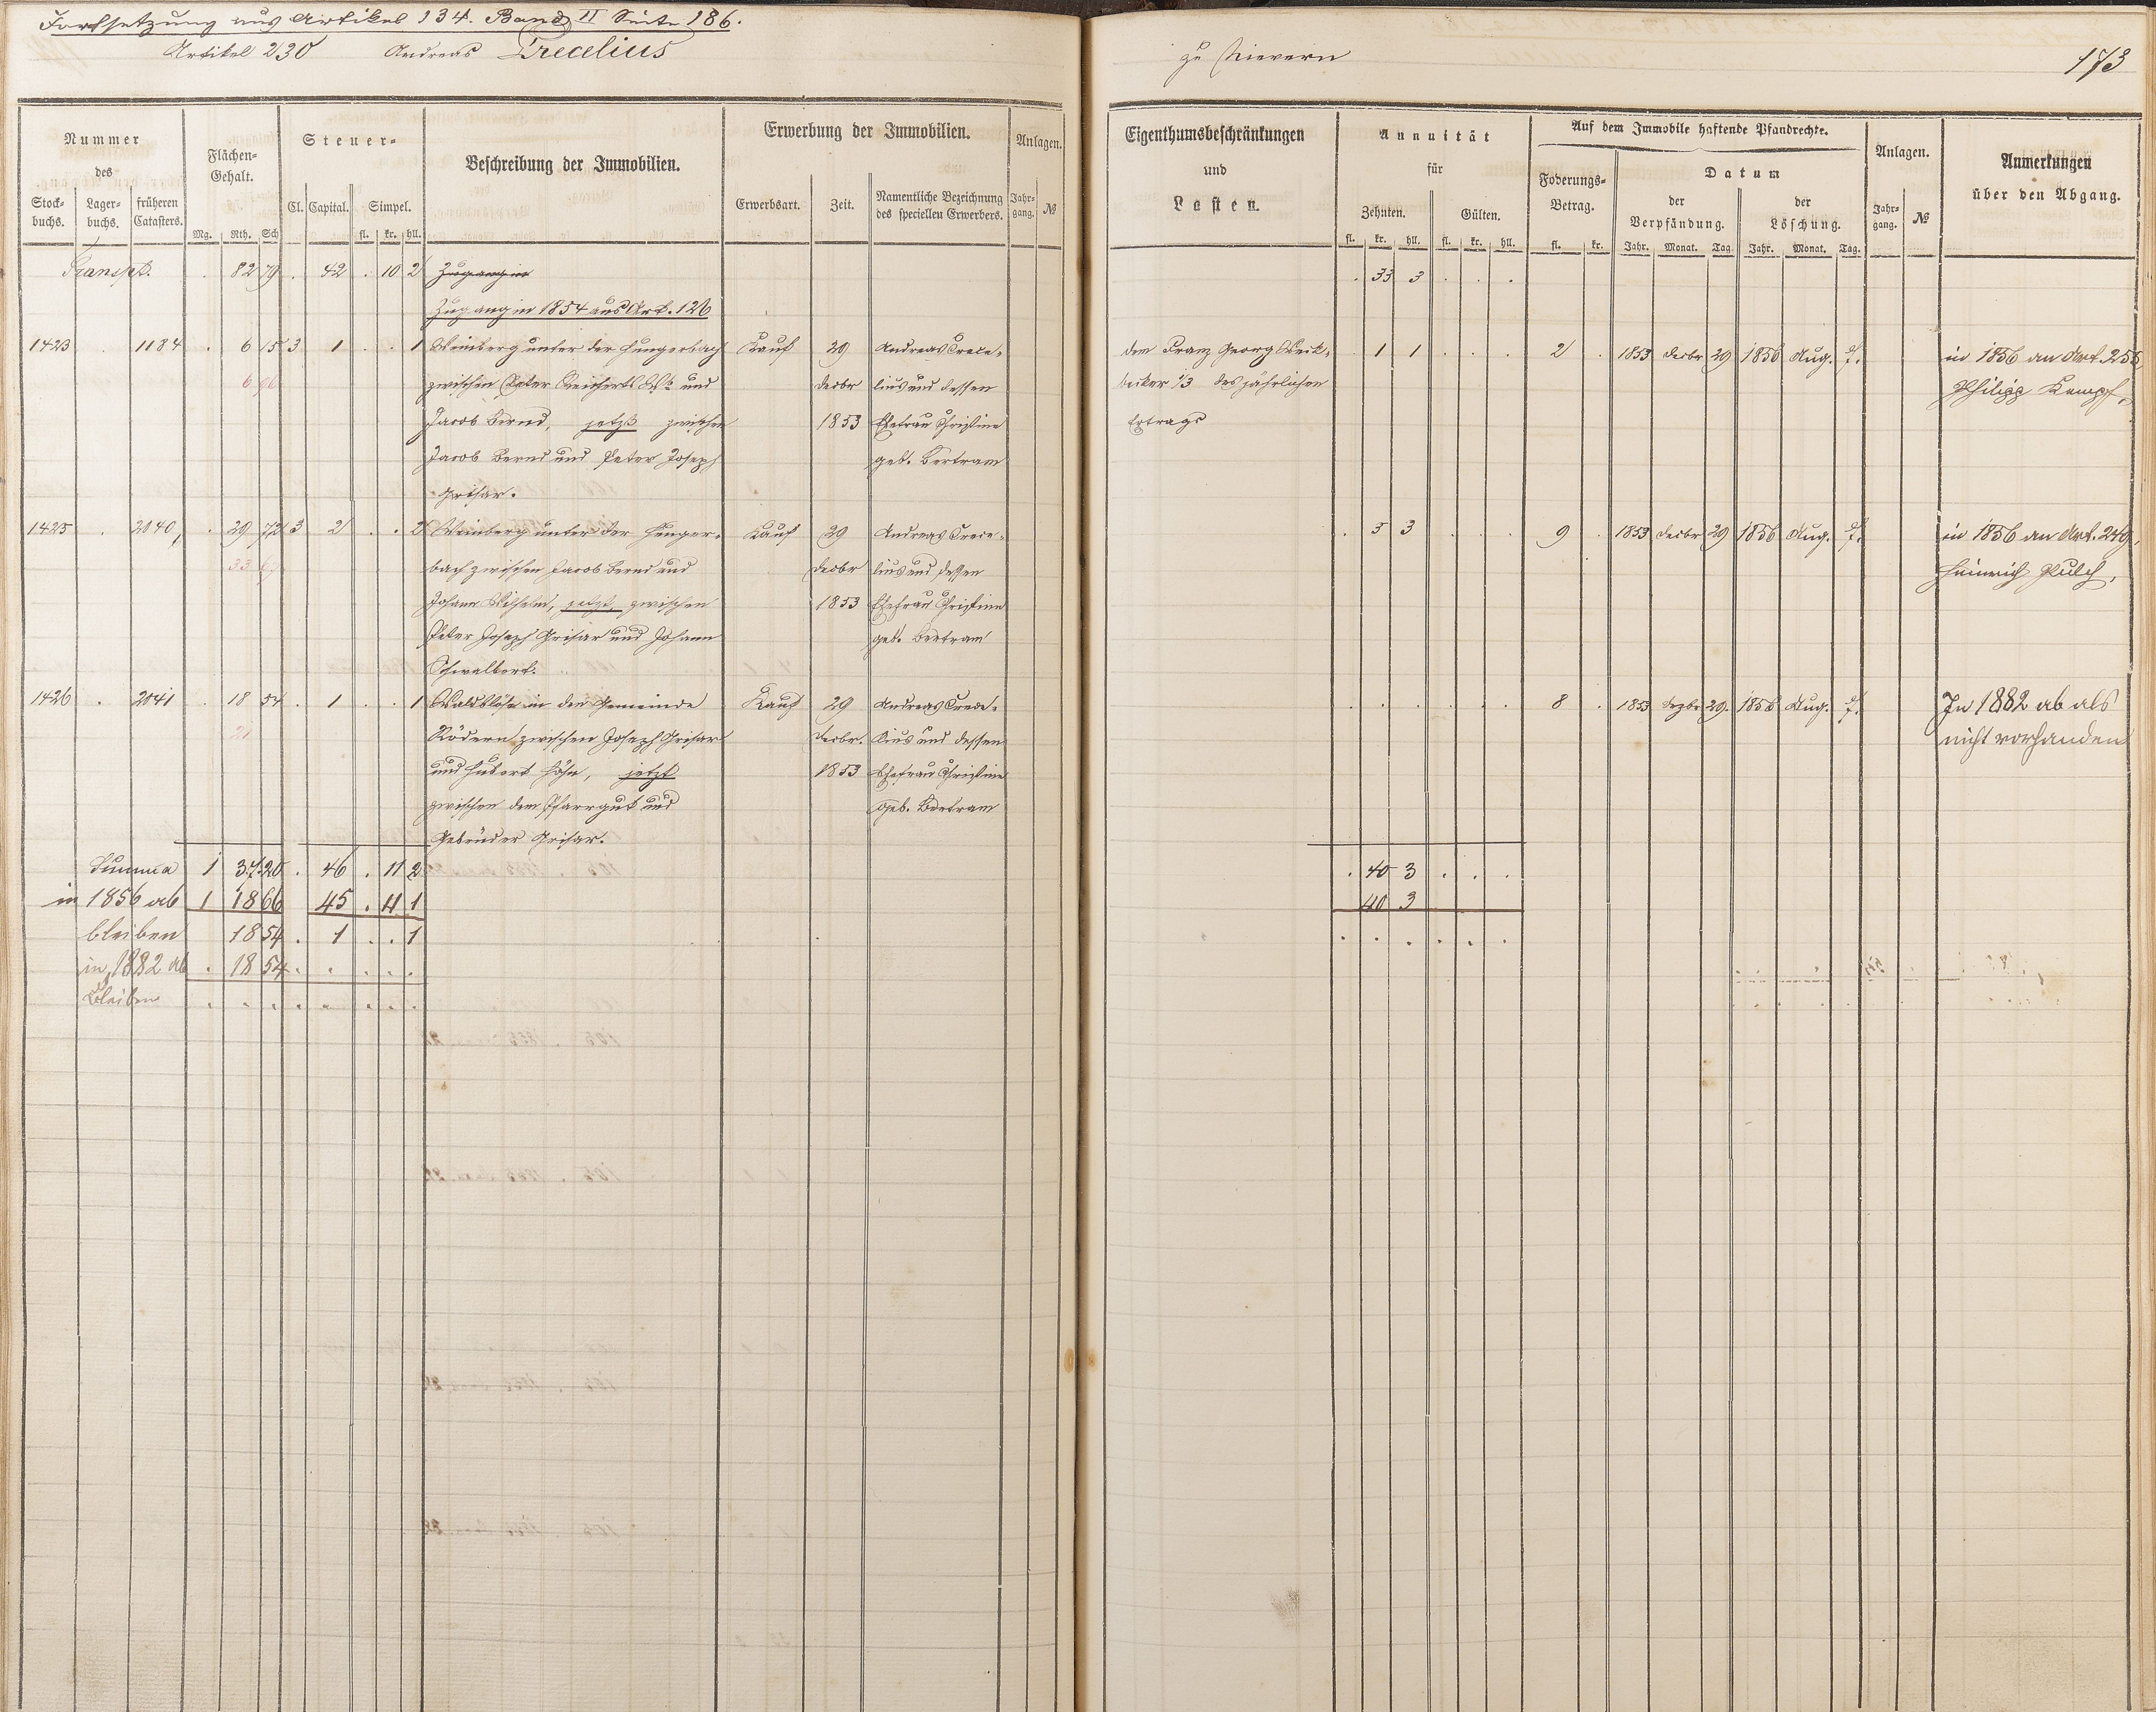 Fortsetzung aus Artikel 134. Band II Seite 186.
Artikel 230 Andreas Crecelius
zu Nievern 173
Nummer des
Stock-buchs. Lager-buchs. früheren Catasters.
Flächen-Gehalt.
Mg. Rth. Sch
Steuer-
Cl. Capital. Simpel.
fl. kr. hll.
Beschreibung der Immobilien.
Erwerbung der Immobilien.
Erwerbsart. Zeit. Namentliche Bezeichnung des speciellen Erwerbers.
Anlagen.
Jahr-gang. №
Eigenthumsbeschränkungen und Lasten.
Annuität für
Zehnten. Gülten.
fl. kr. hll. fl. kr. hll.
Auf dem Immobile haftende Pfandrechte.
Foderungs-Betrag.
fl. kr.
Datum
der Verpfändung. der Löschung.
Jahr. Monat. Tag. Jahr. Monat. Tag.
Anlagen.
Jahr-gang. №
Anmerkungen über den Abgang.
Transpt. . 82 79 . 42 . 10 2 Zugang in . 33 3 . . .
Zugang in 1854 aus Art. 126
1423 . 1184 . 6 15 3 1 . . 1 Weinberg unter der Hungerbach Kauf 29 Andreas Crece- dem Franz Georg . 1 1 . . . 2 . 1853 Decbr 29 1856 Aug. 7. in 1856 an Art. 255
6 96 zwischen Peter Reicherts Wb und Decbr lius und dessen 1/3 des jährlichen Philipp Kampf.
Jacob Bernd, jetzt zwischen 1853 Ehefrau Christine Ertrags
Jacob Bernd und Peter Joseph geb. Bertram
Grisar.
1425 . 2040 . 29 72 3 2 . . 2 Weinberg unter der Hunger- Kauf 29 Andreas Crece- . 5 3 . . . 9 . 1853 Decbr 29 1856 Aug. 7. in 1856 an Art. 249,
bach zwischen Jacob Bernd und Decbr lius und dessen Heinrich Pulch.
Johann Wilhelm, jetzt zwischen 1853 Ehefrau Christine
Peter Joseph Grisar und Johann geb. Bertram
Schwalbert.
1426 . 2041 . 18 54 . 1 . . 1 Waldblöße in den Gemeinde Kauf 29 Andreas Crece- . . . . . . 8 . 1853 Dezbr 29. 1856 Aug. 7. In 1882 ab als
21 Rödern zwischen Joseph Grisar Decbr. lius und dessen nicht vorhanden
und Hubert Höhn, jetzt 1853 Ehefrau Christine
zwischen dem Pfarrgut und geb. Bertram
Gebrüder Grisar.
Summa 1 37 20 . 46 . 11 2 . 40 3 . . .
in 1856 ab 1 18 66 45 . 11 1 40 3
bleiben 18 54 . 1 . . 1 . . . . . .
in 1882 ab . 18 54 . . . . .
Bleiben . . . . . . . .